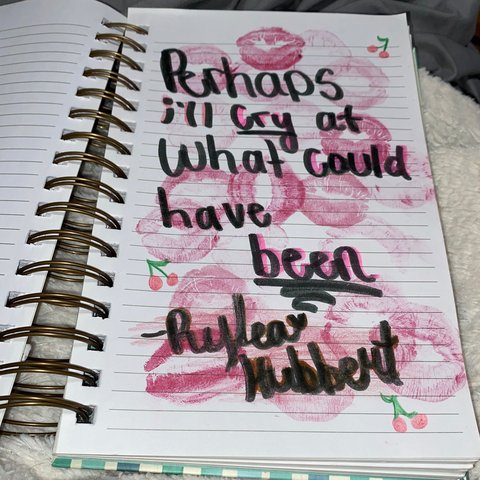 Perhaps
i'll cry at
What could
have
been
Hubbert